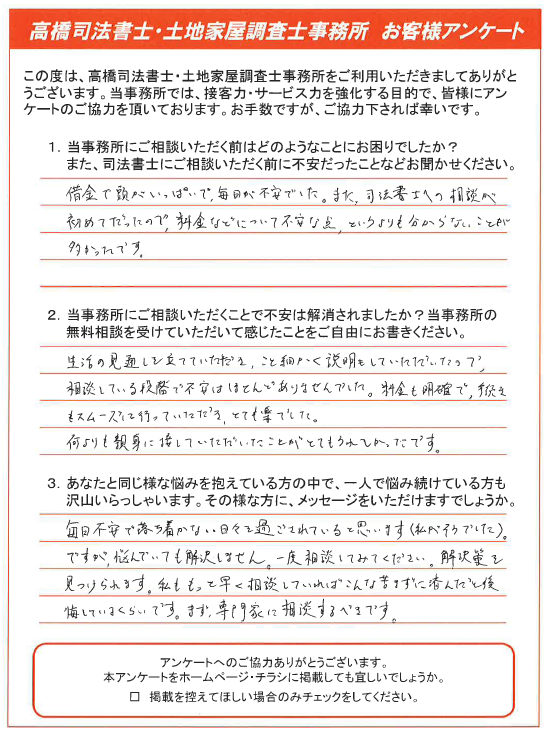 高橋司法書士・土地家屋調査士事務所 お客様アンケート
この度は、高橋司法書士・土地家屋調査士事務所をご利用いただきましてありがと
うございます。当事務所では、接客力・サービス力を強化する目的で、皆様にアン
ケートのご協力を頂いております。お手数ですが、ご協力下されば幸いです。
1．当事務所にご相談いただく前はどのようなことにお困りでしたか？
また、司法書士にご相談いただく前に不安だったことなどお聞かせください。
借金で頭がいっぱいで、毎日が不安でした。また、司法書士への相談が
初めてだったので、料金などについて不安な点、というよりも分からないことが
多かったです。
2．当事務所にご相談いただくことで不安は解消されましたか？当事務所の
無料相談を受けていただいて感じたことをご自由にお書きください。
生活の見通しを立てていただき、こと細かく説明をしていただいたので、
相談している段階で不安はほとんどありませんでした。料金も明確で、手続き
もスムーズに行っていただき、とても楽でした。
何よりも親身に接していただいたことがとてもうれしかったです。
3．あなたと同じ様な悩みを抱えている方の中で、一人で悩み続けている方も
沢山いらっしゃいます。その様な方に、メッセージをいただけますでしょうか。
毎日不安で落ち着かない日々を過ごされていると思います（私がそうでした）。
ですが、悩んでいても解決しません。一度相談してみてください。解決策を
見つけられます。私ももっと早く相談していればこんな苦まずに済んだと後
悔しているくらいです。まず、専門家に相談するべきです。
アンケートへのご協力ありがとうございます。
本アンケートをホームページ・チラシに掲載しても宜しいでしょうか。
□ 掲載を控えてほしい場合のみチェックをしてください。